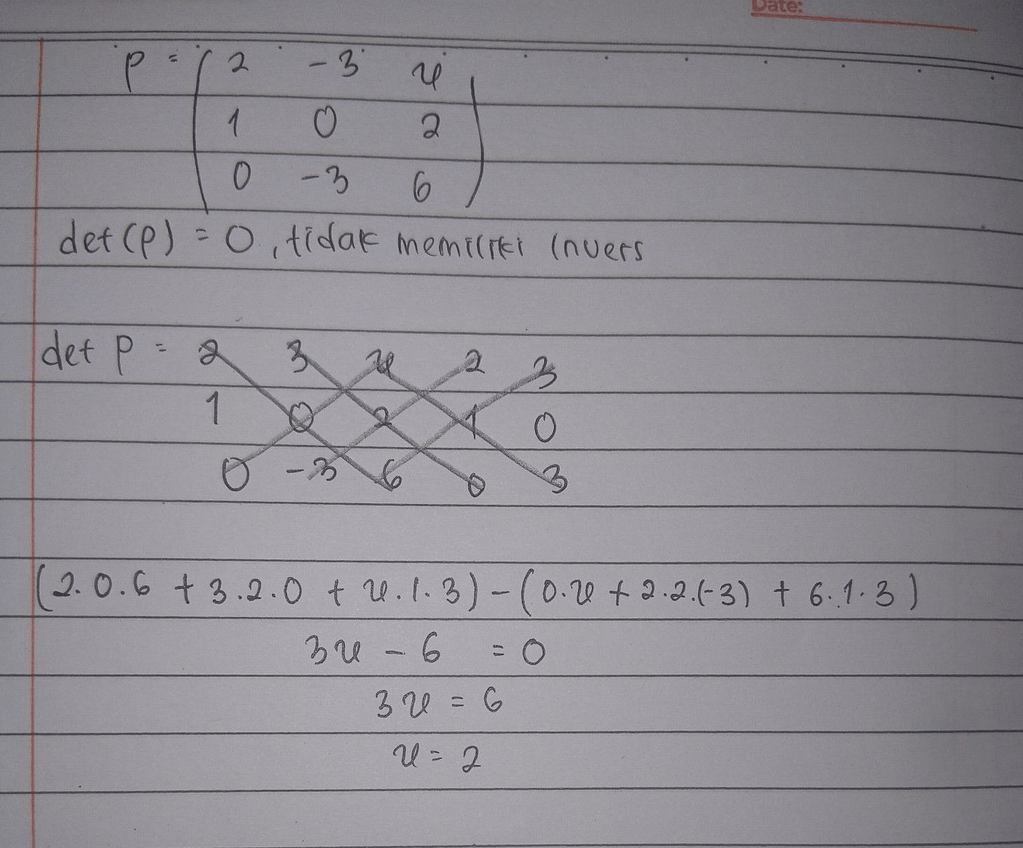 Date:
p = ( 2 -3 u
1 0 2
0 -3 6 )
det (p) = 0, tidak memiliki invers
det p = 2 3 u 2 3
1 0 2 1 0
0 -3 6 0 3
(2.0.6 + 3.2.0 + u.1.3) - (0.u + 2.2.(-3) + 6.1.3)
3u - 6 = 0
3u = 6
u = 2